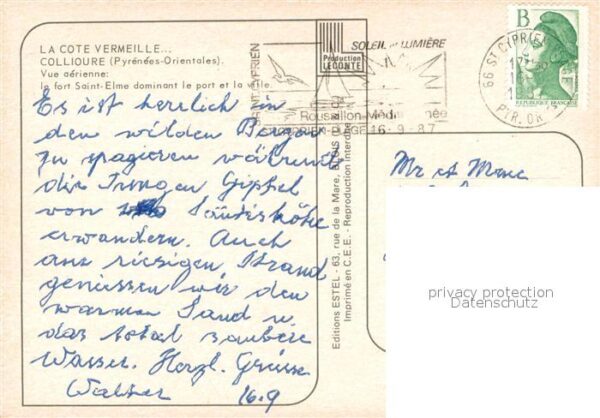 LA COTE VERMEILLE...
COLLIOURE (Pyrénées-Orientales).
Vue aérienne:
le fort Saint-Elme dominant le port et la ville.
Es ist herrlich in
den wilden Bergen
zu spazieren während
die Jungen Gipfel
von Säntishöhe
erwandern. Auch
am riesigen Strand
geniessen wir den
warmen Sand u.
das total saubere
Wasser. Herzl. Grüsse
Walter 16.9
Production
LECONTE
Editions ESTEL - 63, rue de la Mare, BLOIS
Imprimé en C.E.E. - Reproduction Interdite
SOLEIL et LUMIÈRE
Roussillon-Méditerranée
16-9-87
66 ST CYPRIEN
PYR. OR.
B
REPUBLIQUE FRANÇAISE
Mr et Mme
privacy protection
Datenschutz